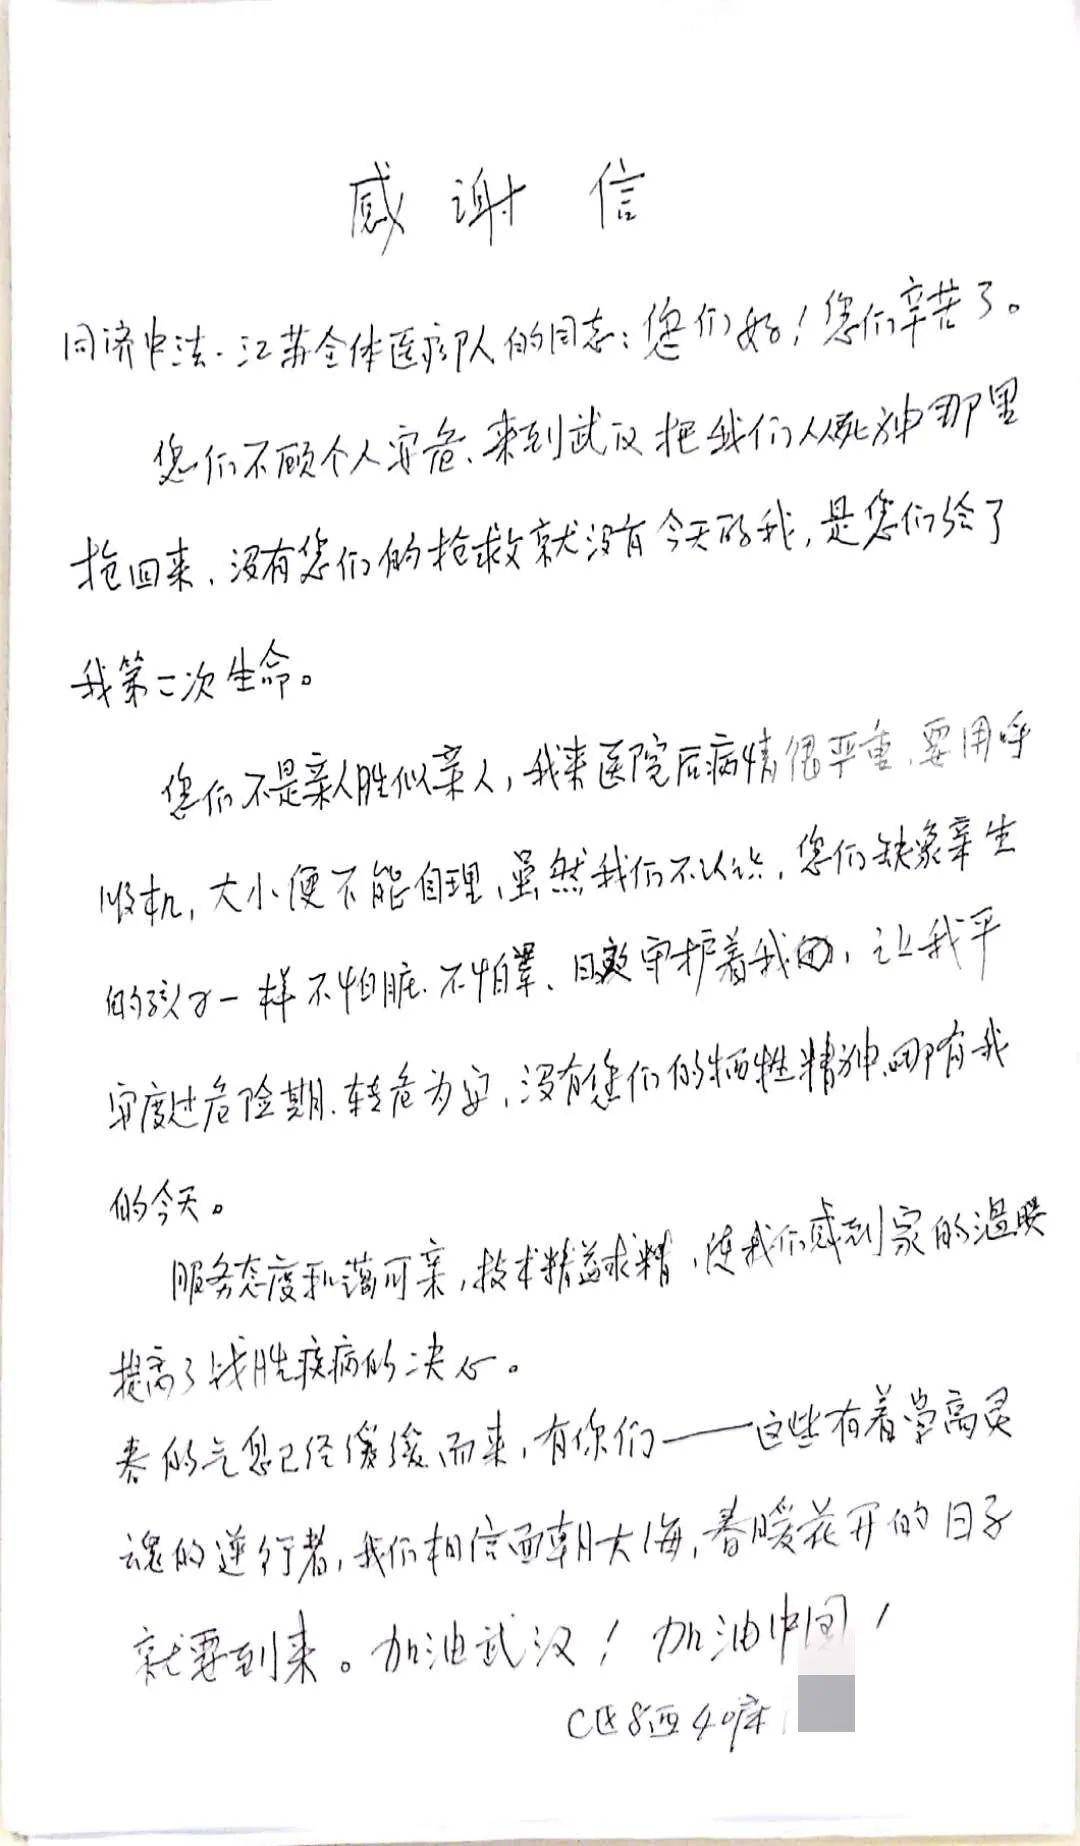 感谢信
同济中法·江苏全体医疗队的同志:您们好!您们辛苦了。
您们不顾个人安危、来到武汉把我们从死神那里
抢回来,没有您们的抢救就没有今天的我,是您们给了
我第二次生命。
您们不是亲人胜似亲人,我来医院后病情很严重,要用呼
吸机,大小便不能自理,虽然我们不认识,您们就象亲生
的孩子一样不怕脏、不怕累、日夜守护着我们,让我平
安度过危险期、转危为安,没有您们的牺牲精神,哪有我
的今天。
服务态度和蔼可亲,技术精益求精,使我们感到家的温暖
提高了战胜疾病的决心。
春的气息已经缓缓而来,有你们——这些有着崇高灵
魂的逆行者,我们相信面朝大海,春暖花开的日子
就要到来。加油武汉!加油中国!
C区8西40床